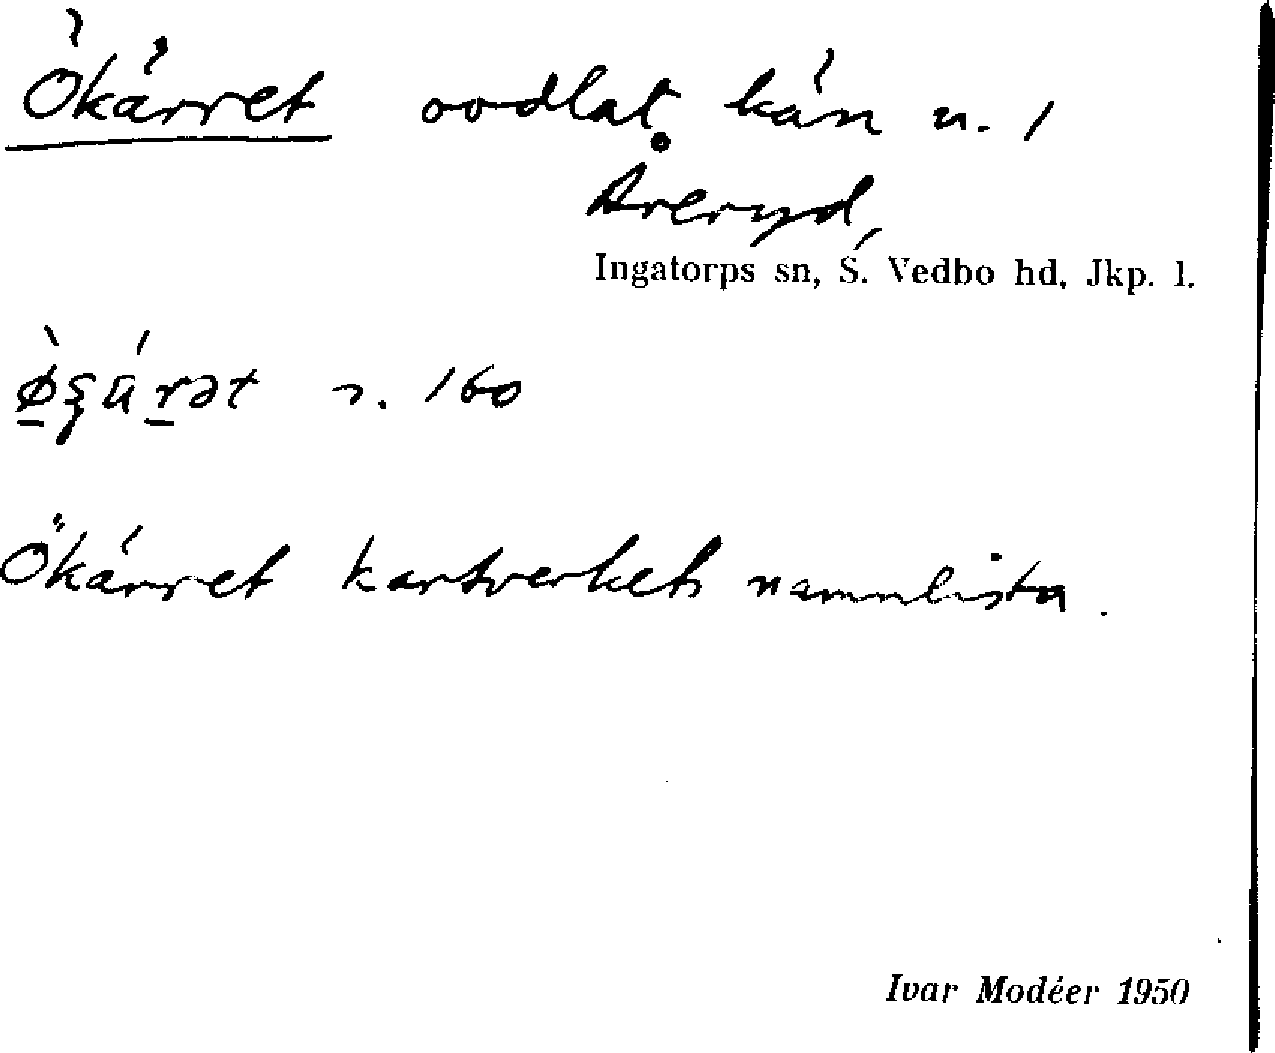 Ökärret oodlat kärr n. 1
Åreryd,
Ingatorps sn, S. Vedbo hd, Jkp. l.
160
Ökärret kartverkets namnlista.
Ivar Modéer 1950